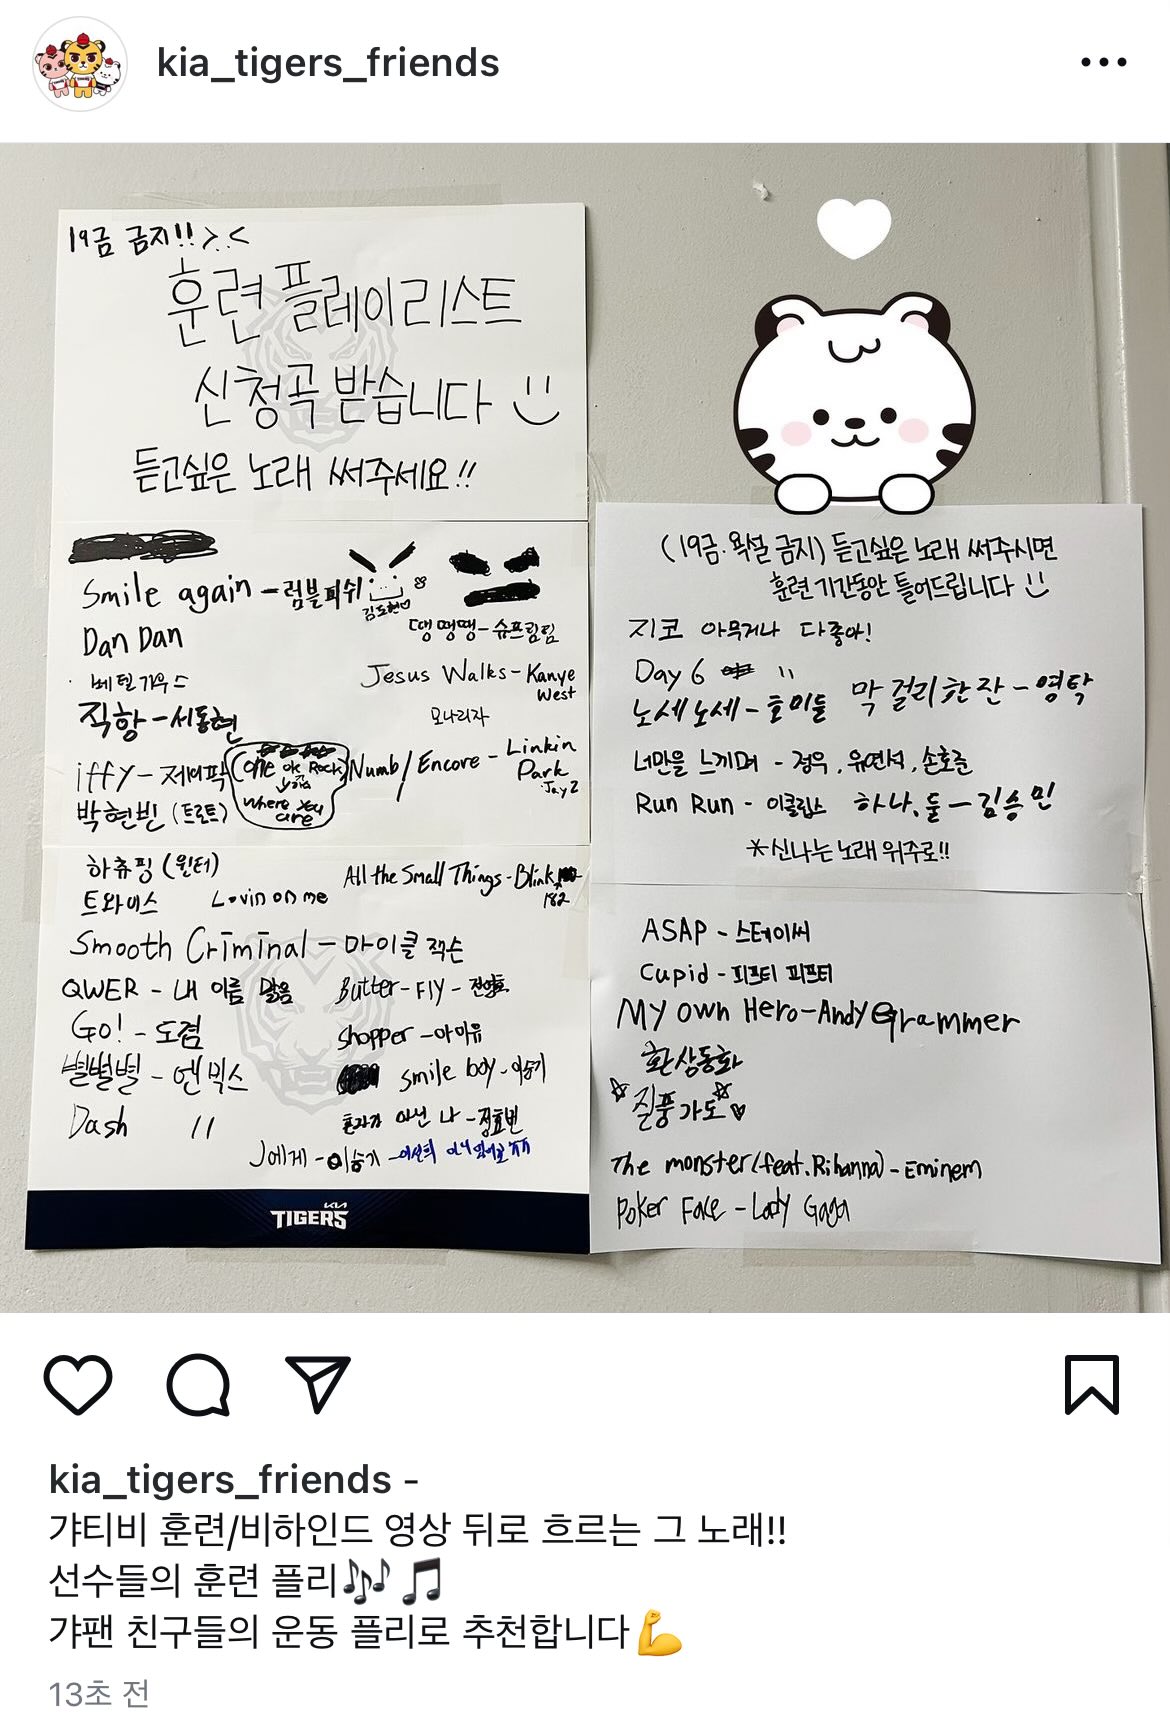 kia_tigers_friends
19금 금지!! >.<
훈련 플레이리스트
신청곡 받습니다
듣고싶은 노래 써주세요!!
Smile again - 럼블피쉬
김도현♡
Dan Dan
땡땡땡 - 슈프림팀
베텔기우스
Jesus Walks - Kanye
West
직항 - 서동현
모나리자
iffy - 제이팍
(one ok Rock)
where you
are
Numb/Encore - Linkin
Park
Jay Z
박현빈 (트로트)
하츄핑 (윈터)
All the Small Things - Blink
182
트와이스
Lovin on me
Smooth Criminal - 마이클 잭슨
QWER - 내 이름 맑음
Butter-Fly - 전영호
Go! - 도겸
shopper - 아이유
별별별 - 엔믹스
smile boy - 이승기
Dash 〃
혼자가 아닌 나 -
J에게 - 이승기 - 이선희
TIGERS
(19금·욕설 금지) 듣고싶은 노래 써주시면
훈련 기간동안 틀어드립니다
지코 아무거나 다좋아!
Day 6 〃
노세노세 - 호미들
막걸리 한잔 - 영탁
너만을 느끼며 - 정우, 유연석, 손호준
Run Run - 이클립스
하나, 둘 - 김승민
*신나는 노래 위주로!!
ASAP - 스테이씨
Cupid - 피프티 피프티
My own Hero - Andy Grammer
환상동화
☆질풍가도☆♡
The monster (feat. Rihanna) - Eminem
Poker Face - Lady Gaga
kia_tigers_friends -
갸티비 훈련/비하인드 영상 뒤로 흐르는 그 노래!!
선수들의 훈련 플리🎶🎵
갸팬 친구들의 운동 플리로 추천합니다💪
13초 전